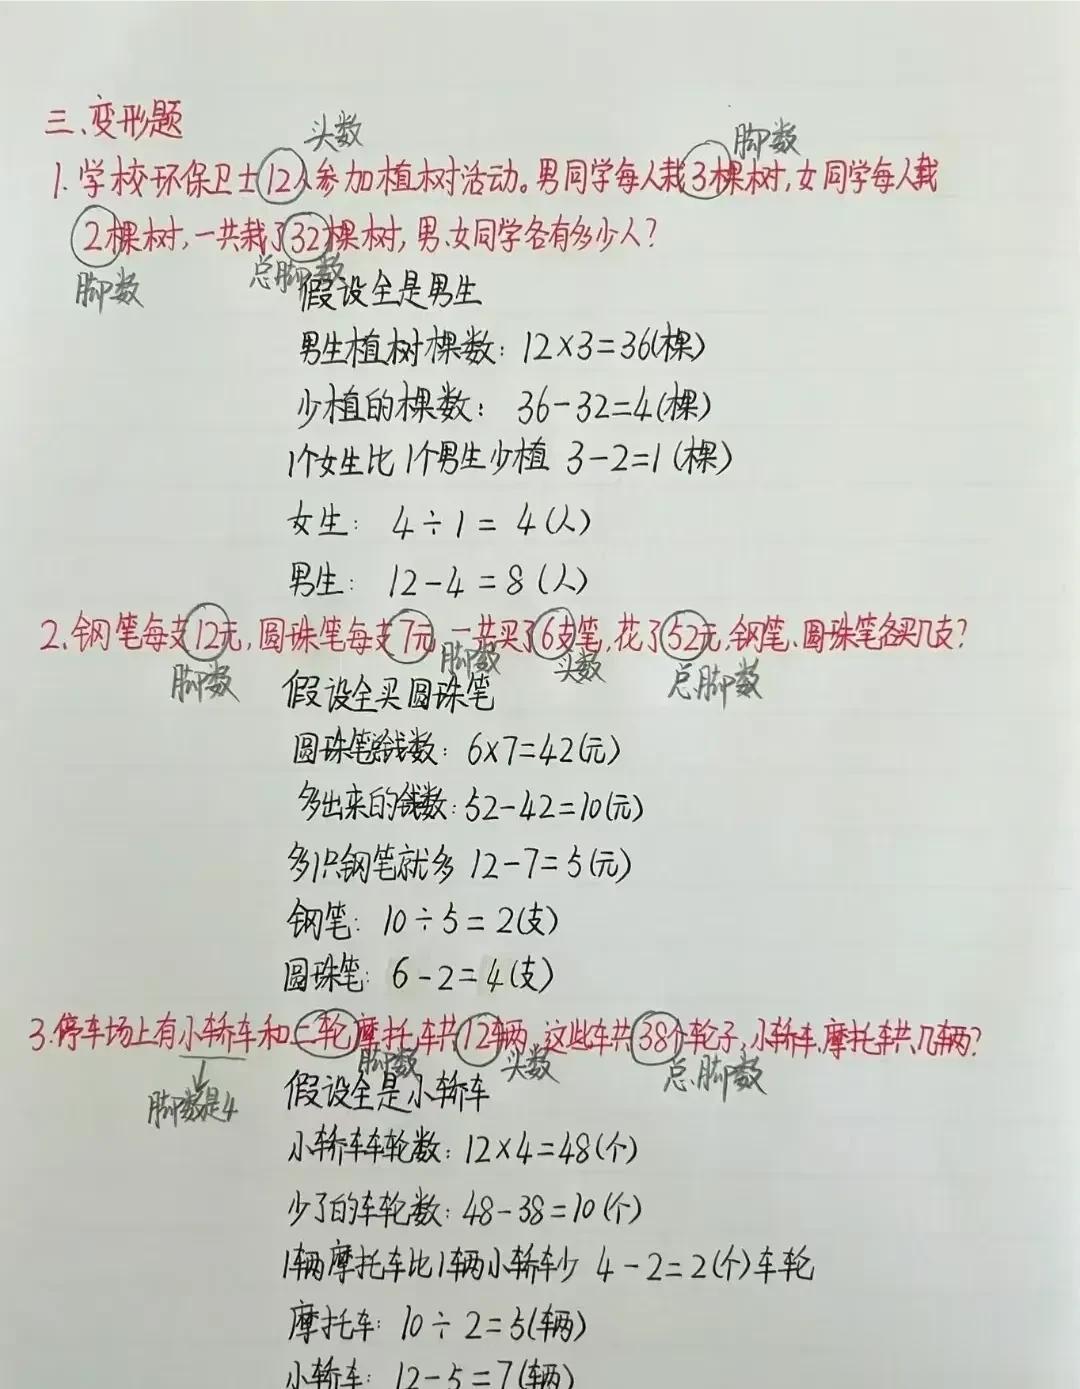 三、变形题
头数 脚数
1. 学校环保卫士12人参加植树活动。男同学每人栽3棵树,女同学每人栽
2棵树,一共栽了32棵树,男、女同学各有多少人?
脚数 总脚数
假设全是男生
男生植树棵数: 12×3=36(棵)
少植的棵数: 36-32=4(棵)
1个女生比1个男生少植 3-2=1(棵)
女生: 4÷1=4(人)
男生: 12-4=8(人)
2. 钢笔每支12元,圆珠笔每支7元,一共买了6支笔,花了52元,钢笔、圆珠笔各买几支?
脚数 脚数 头数 总脚数
假设全买圆珠笔
圆珠笔总钱数: 6×7=42(元)
多出来的钱数: 52-42=10(元)
多1只钢笔就多 12-7=5(元)
钢笔: 10÷5=2(支)
圆珠笔: 6-2=4(支)
3. 停车场上有小轿车和二轮摩托车共12辆,这些车共38个轮子,小轿车、摩托车共几辆?
脚数是4 脚数 头数 总脚数
假设全是小轿车
小轿车车轮数: 12×4=48(个)
少了的车轮数: 48-38=10(个)
1辆摩托车比1辆小轿车少 4-2=2(个)车轮
摩托车: 10÷2=5(辆)
小轿车: 12-5=7(辆)